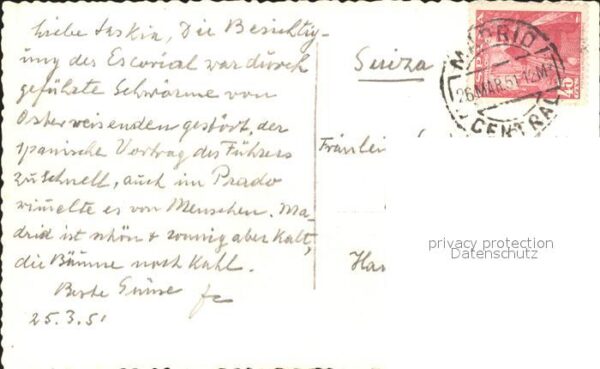 Liebe Saskia, Die Besichtig-
ung des Escorial war durch
geführte Schwärme von
Osterreisenden gestört, der
spanische Vortrag des Führers
zu schnell, auch im Prado
wimmelte es von Menschen. Ma-
drid ist schön & sonnig aber kalt,
die Bäume noch kahl.
Beste Grüsse
25.3.51
Suiza
Fräulein
ESPAÑA
40
MADRID
26 MAR 51
CENTRAL
privacy protection
Datenschutz